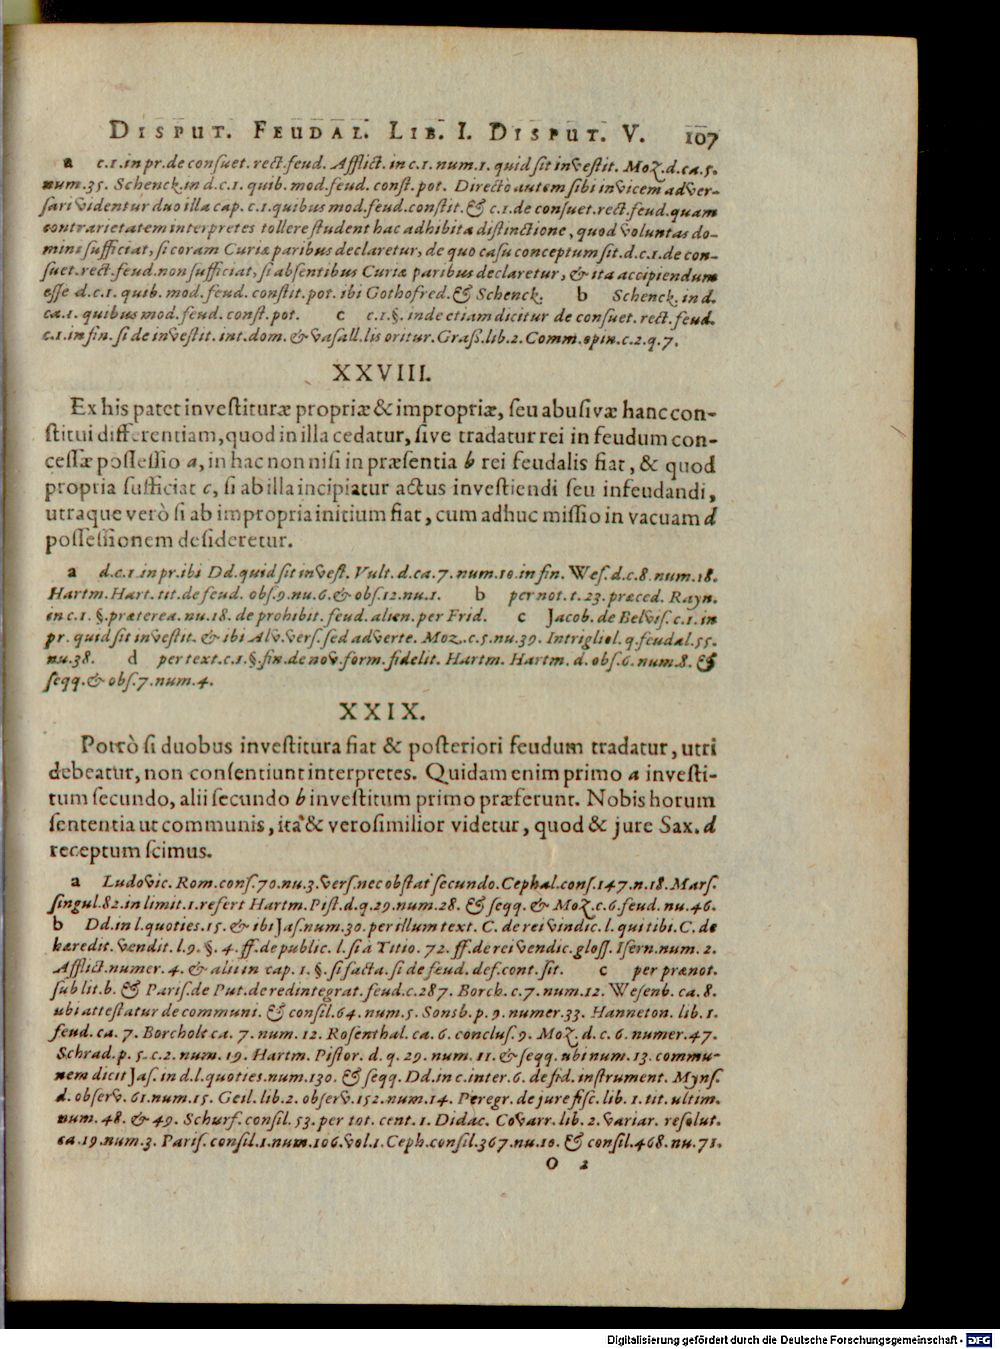 DISPUT. FEUDAL. LIB. I. DISPUT. V. 107
a c.1.in pr.de consuet. rect.feud. Afflict. in c.1. num.1. quid sit investit. Moz.d.ca.5.
num.35. Schenck.in d.c.1. quib. mod.feud. const. pot. Directo autem sibi invicem adver-
sari videntur duo illa cap. c.1.quibus mod.feud.constit.& c.1.de consuet.rect.feud.quam
contrarietatem interpretes tollere student hac adhibita distinctione, quod voluntas do-
mini sufficiat, si coram Curiæ paribus declaretur, de quo casu conceptum sit.d.c.1.de con-
suet.rect.feud.non sufficiat, si absentibus Curiæ paribus declaretur, & ita accipiendum
esse d.c.1. quib. mod.feud. constit.pot. ibi Gothofred.& Schenck. b Schenck. in d.
ca.1. quibus mod.feud. const.pot. c c.1.§. inde etiam dicitur de consuet. rect.feud.
c.1.in fin. si de investit. int.dom. & vasall.lis oritur. Grass.lib.2. Comm.opin.c.2.q.7.
XXVIII.
Ex his patet investituræ propriæ & impropriæ, seu abusivæ hanc con-
stitui differentiam, quod in illa cedatur, sive tradatur rei in feudum con-
cessæ possessio a, in hac non nisi in præsentia b rei feudalis fiat, & quod
propria sufficiat c, si ab illa incipiatur actus investiendi seu infeudandi,
utraque verò si ab impropria initium fiat, cum adhuc missio in vacuam d
possessionem desideretur.
a d.c.1.in pr.ibi Dd.quid sit invest. Vult. d.ca.7. num.10.in fin. Wes.d.c.8.num.18.
Hartm.Hart. tit.de feud. obs.9.nu.6.& obs.12.nu.1. b per not. t.23.præced. Rayn.
in c.1. §.præterea.nu.18. de prohibit. feud. alien.per Frid. c Jacob. de Belvis. c.1. in
pr. quid sit investit. & ibi Alv.vers.sed adverte. Moz..c.5.nu.39. Intrigliol. q.feudal.55.
nu.38. d per text.c.1.§.fin.de nov.form.fidelit. Hartm. Hartm. d. obs.6. num.8. &
seqq.& obs.7.num.4.
XXIX.
Porrò si duobus investitura fiat & posteriori feudum tradatur, utri
debeatur, non consentiunt interpretes. Quidam enim primo a investi-
tum secundo, alii secundo b investitum primo præferunt. Nobis horum
sententia ut communis, ita & verosimilior videtur, quod & jure Sax. d
receptum scimus.
a Ludovic. Rom.cons.70.nu.3.vers.nec obstat secundo. Cephal.cons.147.n.18. Mars.
singul.82.in limit.1.refert Hartm. Pist.d.q.29.num.28. & seqq. & Moz.c.6.feud. nu.46.
b Dd.in l.quoties.15. & ibi Jas.num.30. per illum text. C. de rei vindic.l. qui tibi. C. de
hæredit. vendit. l.9. §. 4. ff.de public. l.si à Titio. 72. ff.de rei vendic.gloss. Isern.num.2.
Afflict.numer.4. & alii in cap. 1. §. si facta. si de feud. def.cont.sit. c per prænot.
sub lit.b. & Paris.de Put.de redintegrat.feud.c.287. Borch.c.7.num.12. Wesenb. ca.8.
ubi attestatur de communi. & consil.64.num.5. Sonsb.p. 9.numer.33. Hanneton. lib. 1.
feud. ca. 7. Borcholt ca. 7. num. 12. Rosenthal. ca. 6. conclus.9. Moz. d. c. 6. numer.47.
Schrad. p. 5. c.2. num. 19. Hartm. Pistor. d. q. 29. num. 11. & seqq. ubi num. 13. commu-
nem dicit Jas. in d.l.quoties.num.130. & seqq. Dd.in c.inter.6. de fid. instrument. Myns.
d. observ. 61.num.15. Geil. lib.2. observ.152.num.14. Peregr.de jure fisc. lib. 1.tit.ultim.
num. 48. & 49. Schurf.consil.53.per tot. cent.1. Didac. Covarr.lib.2.variar. resolut.
ca.19.num.3. Paris. consil.1.num.106.vol.1. Ceph.consil.367.nu.10. & consil.468.nu.71.
O 2
Digitalisierung gefördert durch die Deutsche Forschungsgemeinschaft - DFG